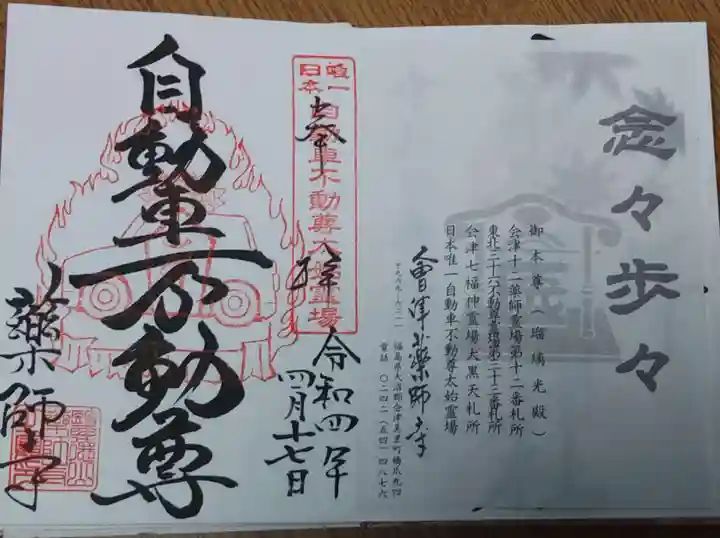 念々歩々
御本尊(瑠璃光殿)
会津十二薬師霊場第十二番札所
東北三十六不動尊霊場第二十三番札所
会津七福神霊場大黒天札所
日本唯一自動車不動尊太始霊場
會津薬師寺
福島県大沼郡会津美里町橋爪九四
電話 〇二四二(五四)四八七六
日本唯一
自動車不動尊太始霊場
奉拝
令和四年
四月十七日
自動車不動尊
薬師寺